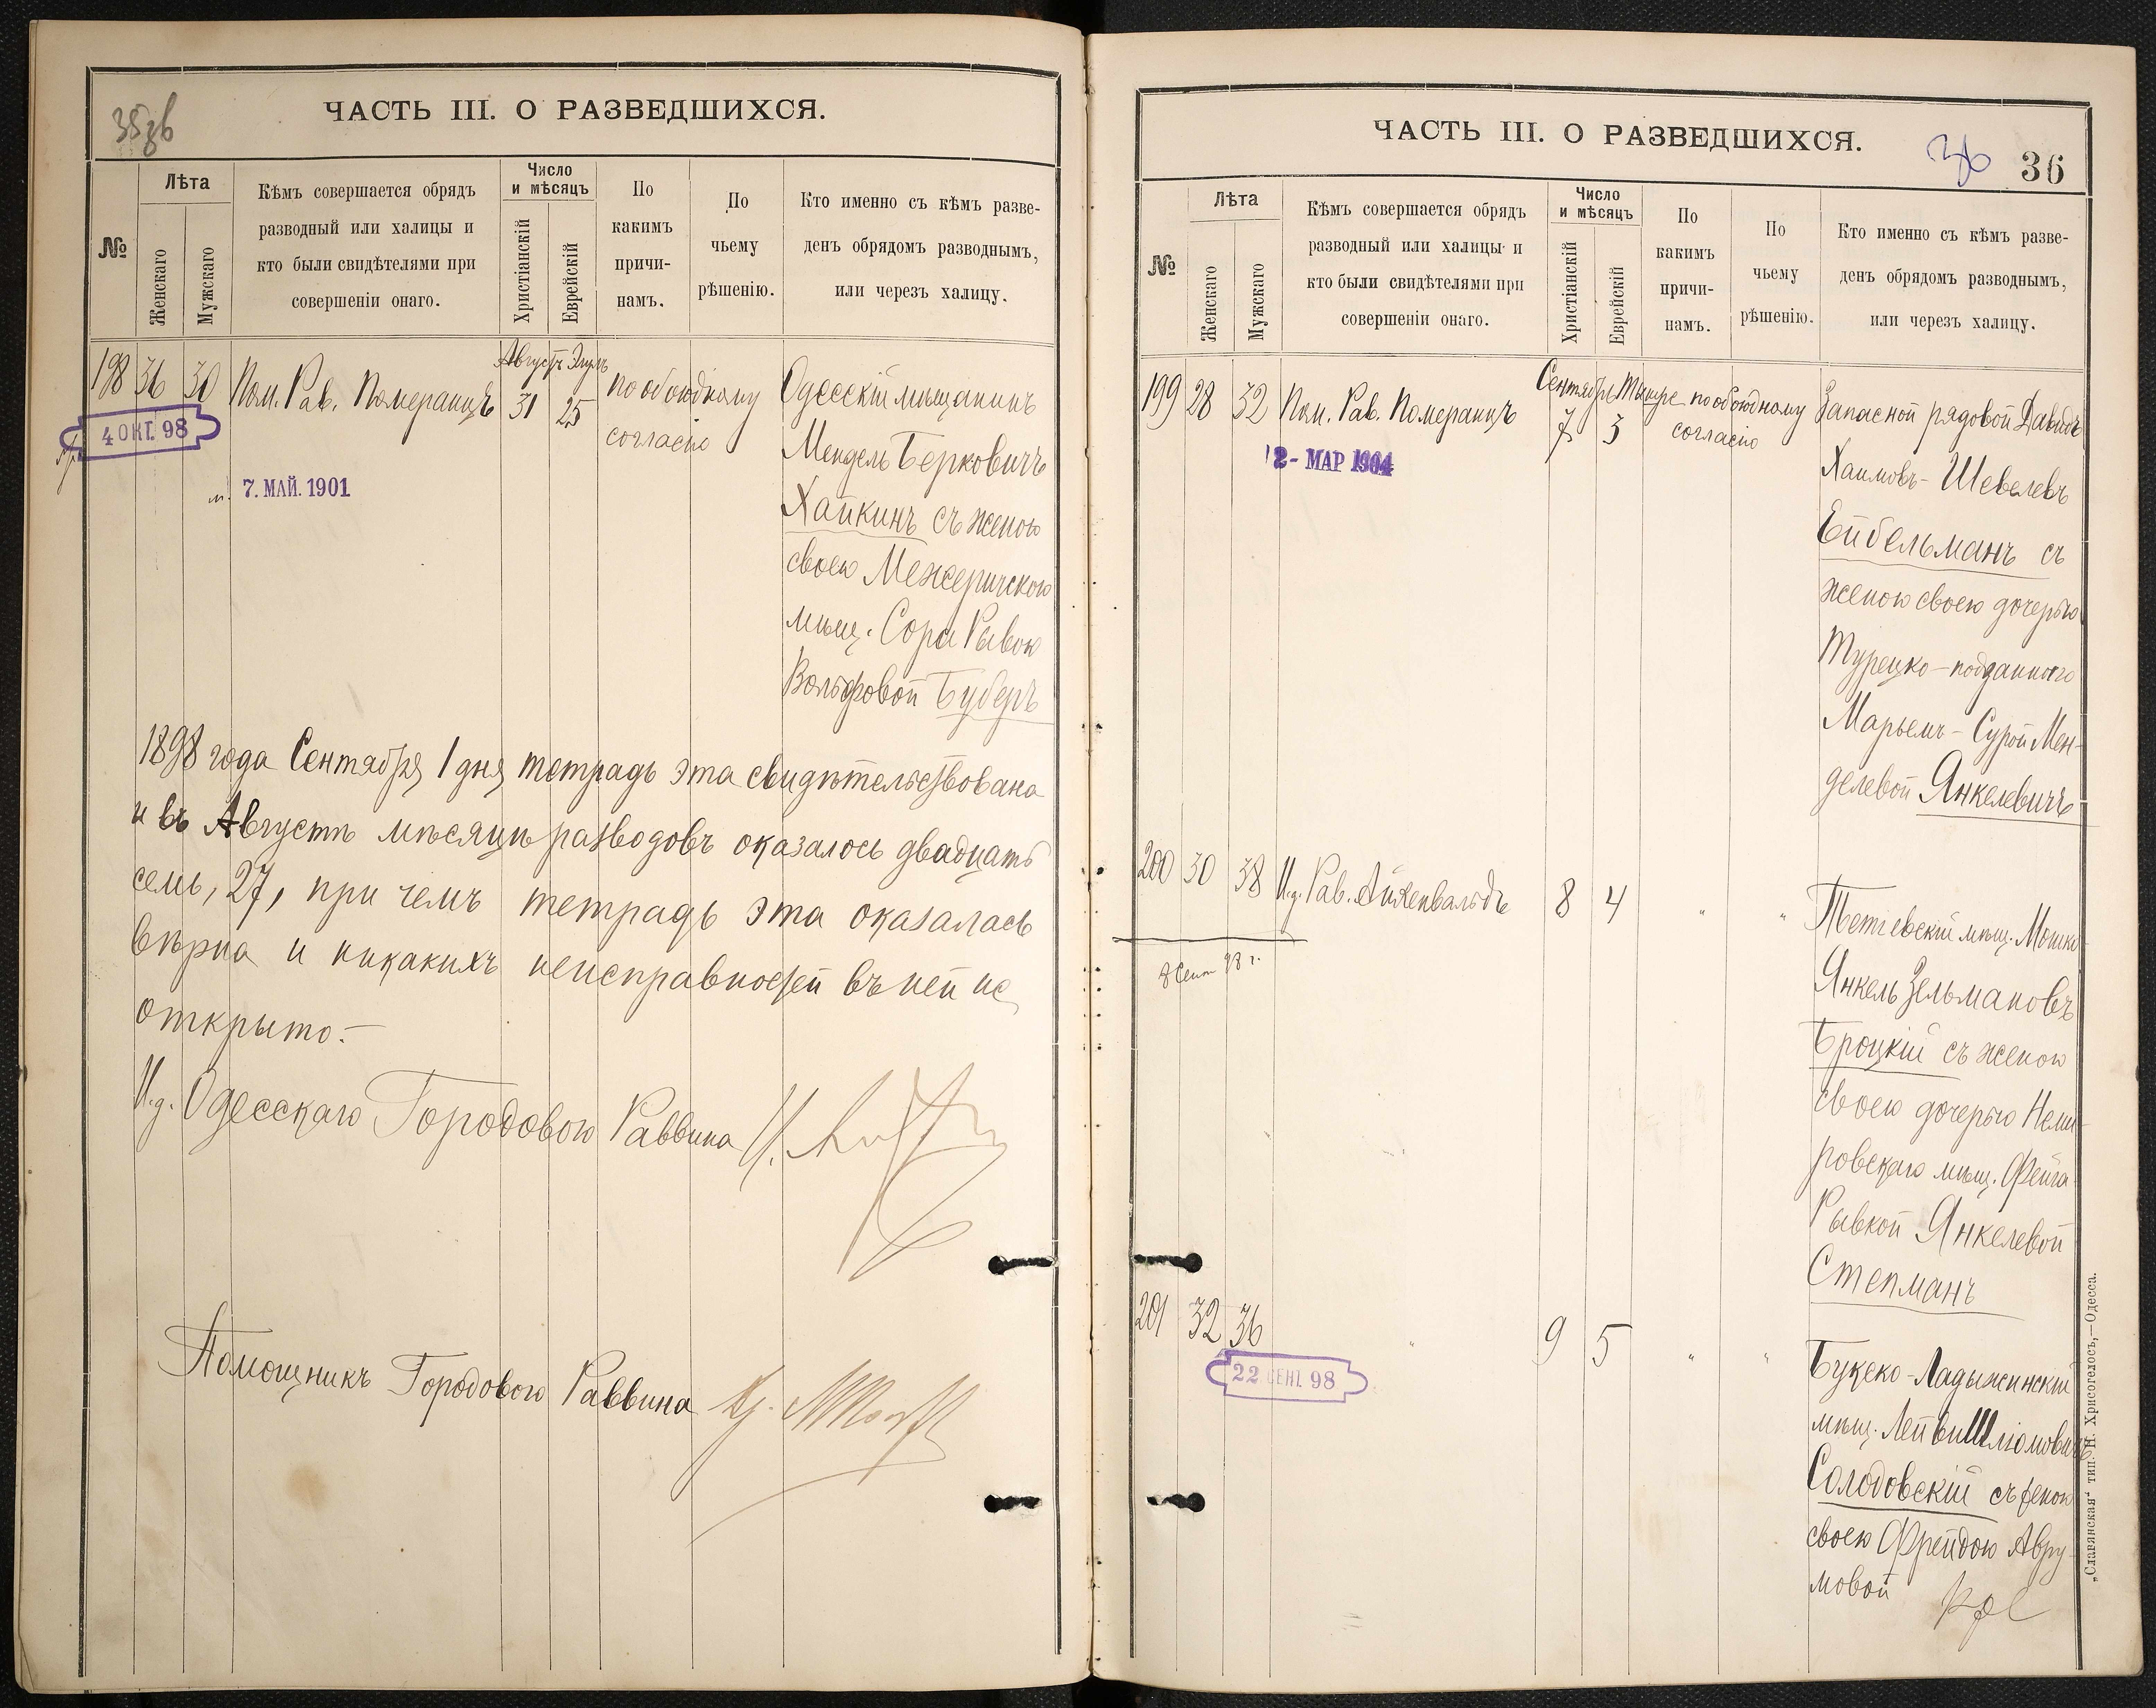 35 зв
ЧАСТЬ III. О РАЗВЕДШИХСЯ.
№
Лѣта
Женскаго
Мужскаго
Кѣмъ совершается обрядъ
разводный или халицы и
кто были свидѣтелями при
совершеніи онаго.
Число
и мѣсяцъ
Христіанскій
Еврейскій
По
какимъ
причи-
намъ.
По
чьему
рѣшенію.
Кто именно съ кѣмъ разве-
денъ обрядомъ разводнымъ,
или черезъ халицу.
198 36 30 Пом. Рав. Померанцъ
Августъ Элулъ
31 25
по обоюдному
согласію
Одесскій мѣщанинъ
Мендель Берковичъ
Хайкинъ съ женою
своею Межеричскою
мѣщ. Сора Рывою
Вольфовой Буберъ
4 ОКТ. 98
7. МАЙ. 1901
1898 года Сентября 1 дня тетрадь эта свидѣтельствована
и въ Августѣ мѣсяцѣ разводовъ оказалось двадцать
семь, 27, при чемъ тетрадь эта оказалась
вѣрна и никакихъ неисправностей въ ней не
открыто.—
И.д. Одесскаго Городового Раввина
Помощникъ Городового Раввина
ЧАСТЬ III. О РАЗВЕДШИХСЯ.
36
36
№
Лѣта
Женскаго
Мужскаго
Кѣмъ совершается обрядъ
разводный или халицы и
кто были свидѣтелями при
совершеніи онаго.
Число
и мѣсяцъ
Христіанскій
Еврейскій
По
какимъ
причи-
намъ.
По
чьему
рѣшенію.
Кто именно съ кѣмъ разве-
денъ обрядомъ разводнымъ,
или черезъ халицу.
199 28 32 Пом. Рав. Померанцъ
Сентябрь Тишре
7 3
по обоюдному
согласію
Запасной рядовой Давидъ
Хаимовъ-Шевелевъ
Ейбельманъ съ
женою своею дочерью
Турецко-подданного
Марьемъ-Сурой Мен-
делевой Янкелевичъ
2 - МАР 1904
200 30 38 И.д. Рав. Айхенвальдъ 8 4 " "
8 Сент 98 г.
Тетіевскій мѣщ. Мошко-
Янкель Зельмановъ
Броцкій съ женою
своею дочерью Неми-
ровскаго мѣщ. Фейга-
Рывкой Янкелевой
Степманъ
201 32 36 " 9 5 " "
22 СЕНТ. 98
Букеко-Ладыжинскій
мѣщ. Лейви Шліомовичъ
Солодовскій съ женою
своею Фрейдою Авру-
мовой
„Славянская“ тип. Н. Хрисогелосъ,—Одесса.